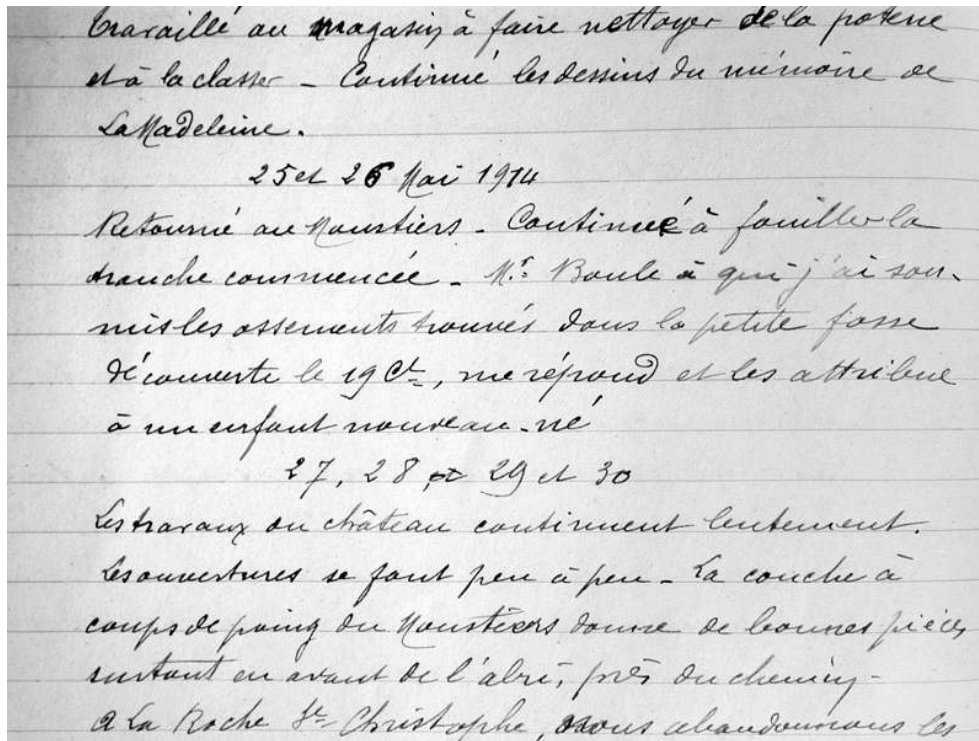 travaillé au magasin à faire nettoyer de la poterie
et à la classer - Continué les dessins du mémoire de
La Madeleine.
25 et 26 Mai 1914
Retourné au Moustiers - Continué à fouiller la
tranche commencée - Mr. Boule à qui j'ai sou-
mis les ossements trouvés dans la petite fosse
découverte le 19 Ct, me répond et les attribue
à un enfant nouveau-né
27, 28, et 29 et 30
Les travaux du château continuent lentement.
Les ouvertures se font peu à peu - La couche à
coups de poing du Moustiers donne de bonnes pièces
surtout en avant de l'abri, près du chemin -
A La Roche St-Christophe, nous abandonnons les